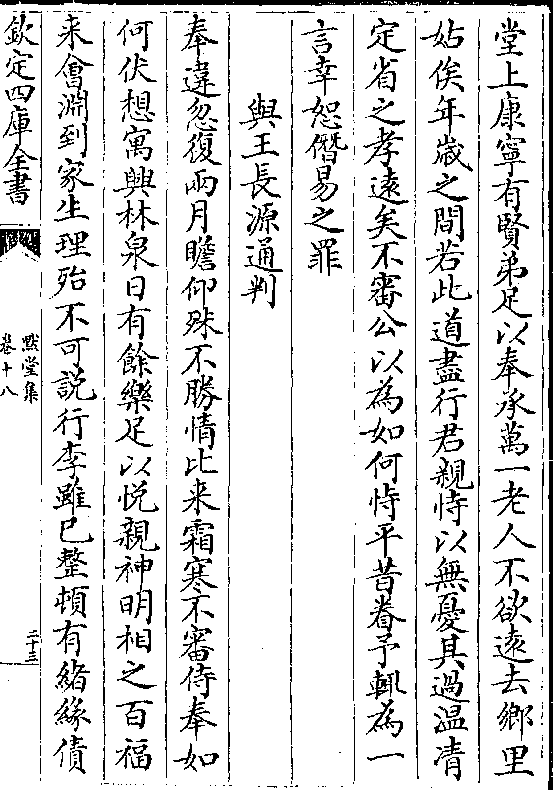 堂上康寧有賢弟足以奉承萬一老人不欲遠去鄉里
姑俟年嵗之間若此道盡行君親恃以無憂其過温凊
定省之孝遠矣不審公以為如何恃平昔眷予輒為一
言幸恕僭易之罪
與王長源通判
奉違忽復兩月瞻仰殊不勝情比来霜寒不審侍奉如
何伏想寓興林泉日有餘樂足以悦親神明相之百福
来㑹淵到家生理殆不可説行李雖已整頓有緒緣債
欽定四庫全書
默堂集
卷十八
二十三